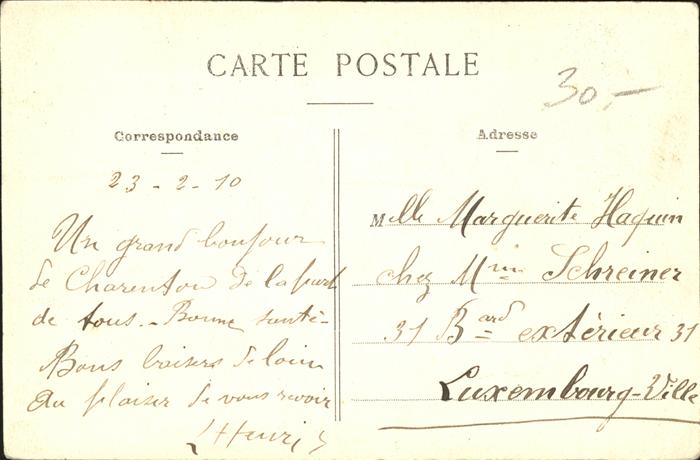 CARTE POSTALE
30.-
Correspondance
23-2-10
Un grand bonjour
de Charenton de la part
de tous. - Bonne santé -
Bons baisers de loin
Au plaisir de vous revoir
Henri
Adresse
Melle Marguerite Haquin
chez Mme Schreiner
31 Bard extérieur 31
Luxembourg-Ville